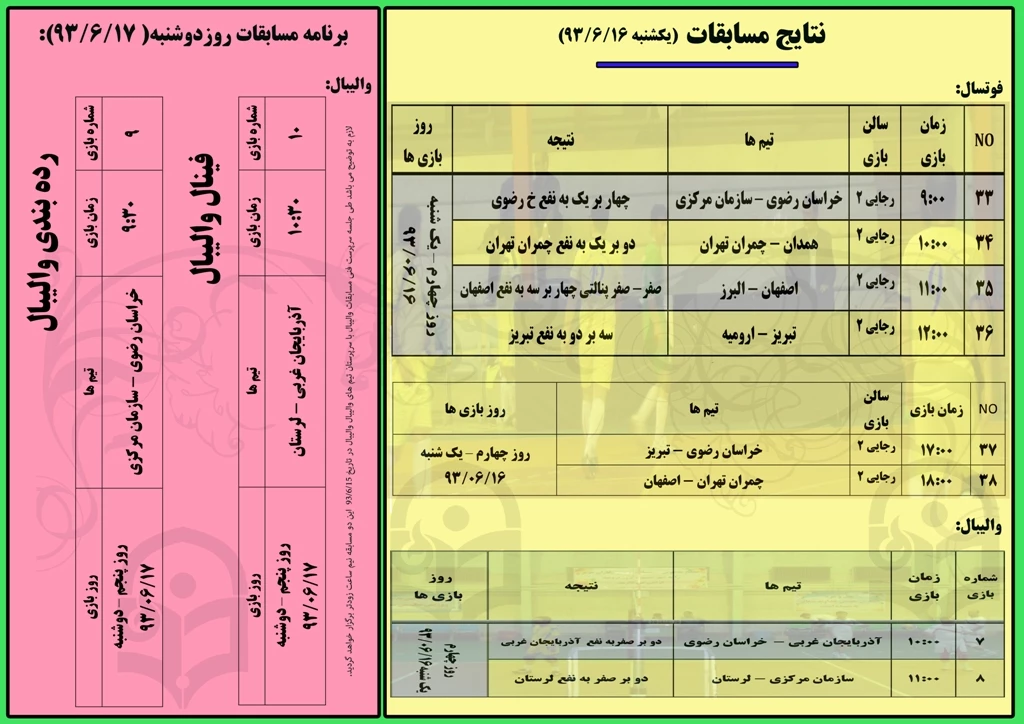 نتایج مسابقات (یکشنبه ۹۳/۶/۱۶)
فوتسال:
NO زمان بازی سالن بازی تیم ها نتیجه روز بازی ها
۳۳ ۹:۰۰ رجایی ۲ خراسان رضوی – سازمان مرکزی چهار بر یک به نفع خ رضوی
۳۴ ۱۰:۰۰ رجایی ۲ همدان – چمران تهران دو بر یک به نفع چمران تهران
۳۵ ۱۱:۰۰ رجایی ۲ اصفهان – البرز صفر– صفر پنالتی چهار بر سه به نفع اصفهان
۳۶ ۱۲:۰۰ رجایی ۲ تبریز – ارومیه سه بر دو به نفع تبریز
روز چهارم – یک شنبه
۹۳/۰۶/۱۶
NO زمان بازی سالن بازی تیم ها روز بازی ها
۳۷ ۱۷:۰۰ رجایی ۲ خراسان رضوی – تبریز روز چهارم – یک شنبه
۳۸ ۱۸:۰۰ رجایی ۲ چمران تهران – اصفهان ۹۳/۰۶/۱۶
والیبال:
شماره بازی زمان بازی تیم ها نتیجه روز بازی ها
۷ ۱۰:۰۰ آذربایجان غربی – خراسان رضوی دو بر صفر به نفع آذربایجان غربی
۸ ۱۱:۰۰ سازمان مرکزی – لرستان دو بر صفر به نفع لرستان
روز چهارم
یک شنبه ۹۳/۰۶/۱۶
برنامه مسابقات روز دوشنبه( ۹۳/۶/۱۷):
والیبال:
لازم به توضیح می باشد طی جلسه سرپرست فنی مسابقات والیبال با سرپرستان تیم های والیبال والیبال در تاریخ 93/6/15 این دو مسابقه نیم ساعت زودتر برگزار خواهد گردید.
فینال والیبال
شماره بازی زمان بازی تیم ها روز بازی
۱۰ ۱۰:۳۰ آذربایجان غربی – لرستان روز پنجم – دوشنبه
۹۳/۰۶/۱۷
رده بندی والیبال
شماره بازی زمان بازی تیم ها روز بازی
۹ ۹:۳۰ خراسان رضوی – سازمان مرکزی روز پنجم – دوشنبه
۹۳/۰۶/۱۷